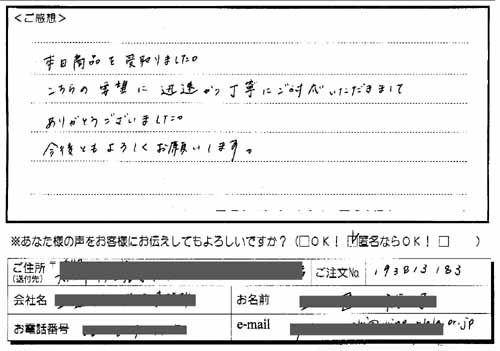 <ご感想>
本日商品を受取りました。
こちらの要望に迅速かつ丁寧にご対応いただきまして
ありがとうございました。
今後ともよろしくお願いします。
※あなた様の声をお客様にお伝えしてもよろしいですか?(□OK! ☑匿名ならOK! □ )
ご住所 〒 ご注文No. 193813183
(送付先)
会社名 お名前
お電話番号 e-mail or.jp